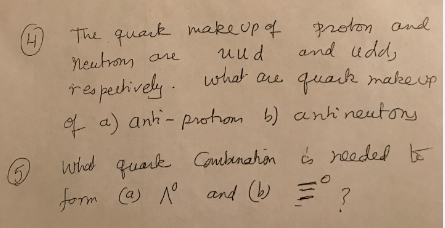 ④ The quark makeup of proton and
neutrons are uud and udd,
respectively. what are quark makeup
of a) anti-protons b) antineutons
⑤ What quark Combination is needed to
form (a) Λ⁰ and (b) Ξ⁰ ?